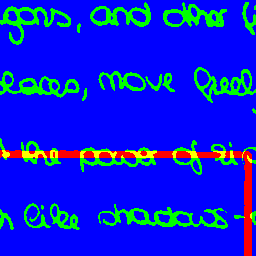 and other
places, move freely
the power of
like shadows-